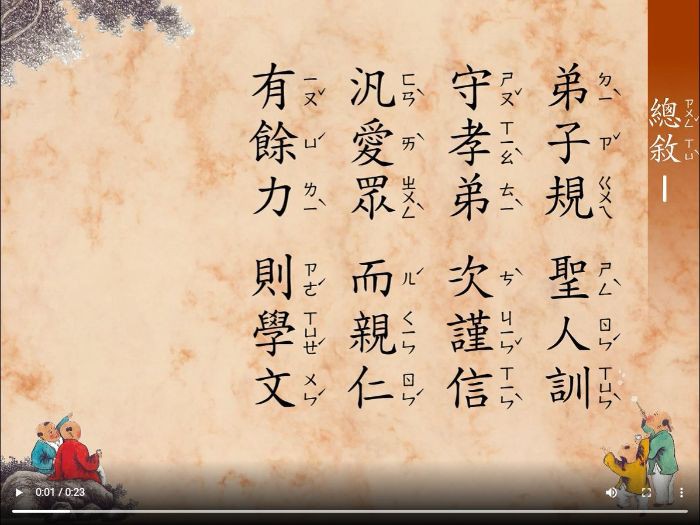 總敘
ㄗㄨㄥˇ ㄒㄩˋ
弟子規 聖人訓
ㄉㄧˋ ㄗˇ ㄍㄨㄟ ㄕㄥˋ ㄖㄣˊ ㄒㄩㄣˋ
守孝弟 次謹信
ㄕㄡˇ ㄒㄧㄠˋ ㄊㄧˋ ㄘˋ ㄐㄧㄣˇ ㄒㄧㄣˋ
汎愛眾 而親仁
ㄈㄢˋ ㄞˋ ㄓㄨㄥˋ ㄦˊ ㄑㄧㄣ ㄖㄣˊ
有餘力 則學文
ㄧㄡˇ ㄩˊ ㄌㄧˋ ㄗㄜˊ ㄒㄩㄝˊ ㄨㄣˊ
0:01 / 0:23